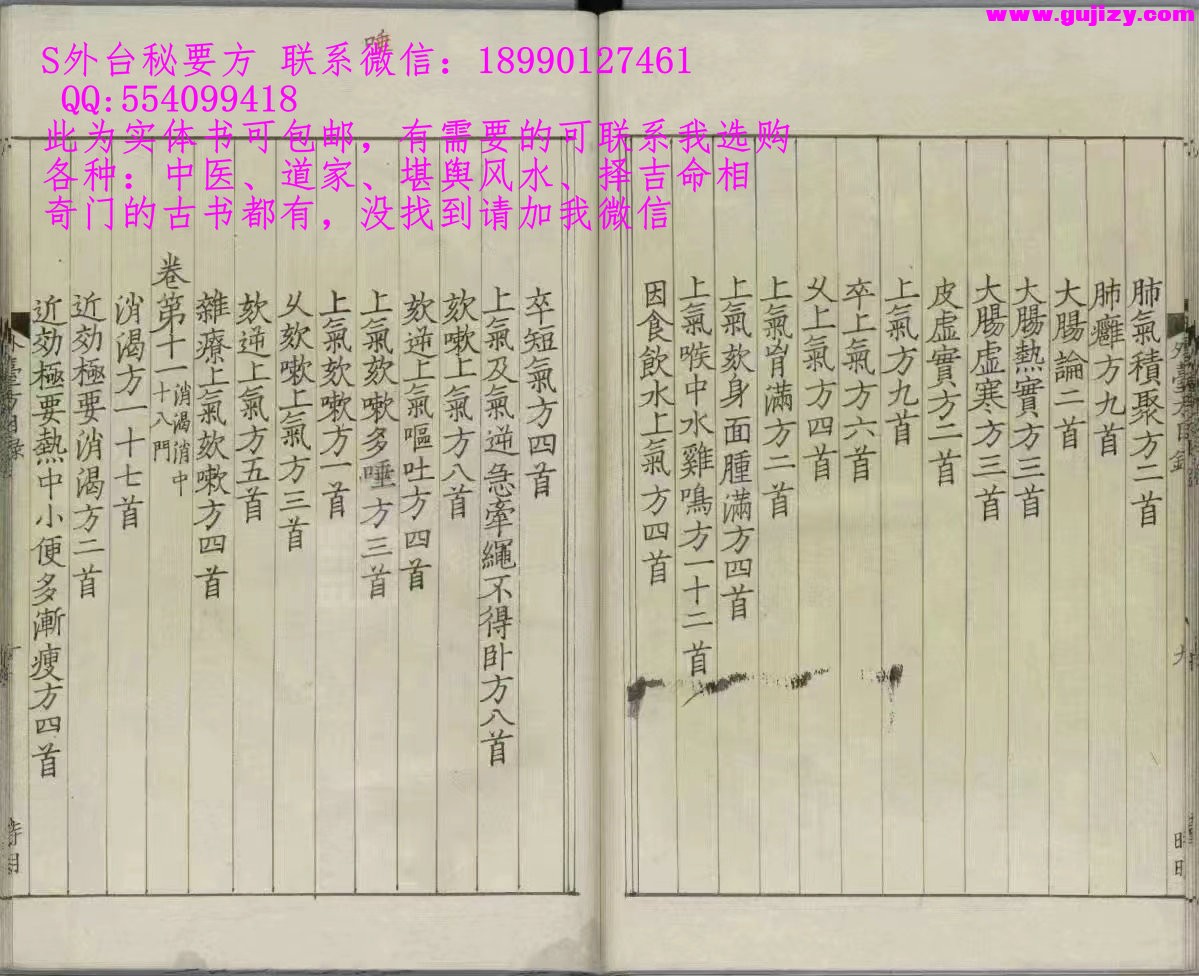 www.gujizy.com
S外台秘要方 联系微信：18990127461
QQ:554099418
此为实体书可包邮，有需要的可联系我选购
各种：中医、道家、堪舆风水、择吉命相
奇门的古书都有，没找到请加我微信
唾
肺氣積聚方二首
肺癰方九首
大腸論二首
大腸熱實方三首
大腸虛寒方三首
皮虛實方二首
上氣方九首
卒上氣方六首
乆上氣方四首
上氣胷滿方二首
上氣欬身面腫滿方四首
上氣喉中水雞鳴方一十二首
因食飲水上氣方四首
卒短氣方四首
上氣及氣逆急牽繩不得卧方八首
欬嗽上氣方八首
欬逆上氣嘔吐方四首
上氣欬嗽多唾方三首
上氣欬嗽方一首
乆欬嗽上氣方三首
欬逆上氣方五首
雜療上氣欬嗽方四首
卷第十一消渴消中十八門
消渴方一十七首
近効極要消渴方二首
近効極要熱中小便多漸瘦方四首